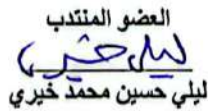 العضو المنتدب
ليلي حسين محمد خيري